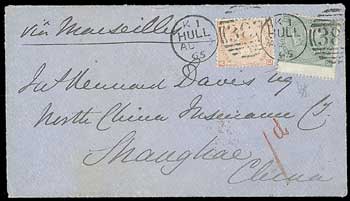 via Marseilles
K 1
HULL
AU
65
383
K 1
HULL
AU
65
383
Davis Esq
North China Insurance Co
Shanghae
China
1d